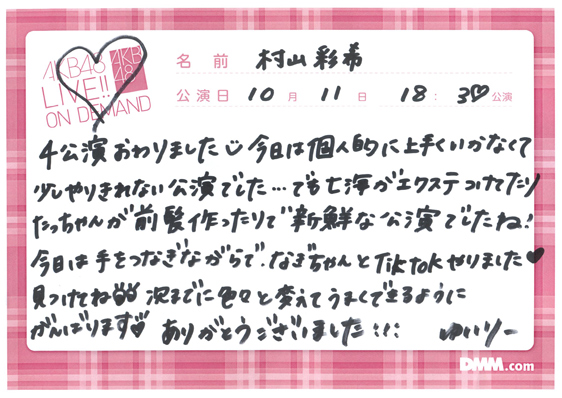 AKB48
LIVE!!
ON DEMAND
AKB
48
名前 村山彩希
公演日 10月 11日 18:30公演
4公演おわりました 今日は個人的に上手くいかなくて
少しやりきれない公演でした…でも七海がエクステつけてたり
たっちゃんが前髪作ったりで新鮮な公演でしたね!
今日は手をつなぎながらで、なぎちゃんとTikTokやりました♥
見つけてね 次までに色々と変えてうまくできるように
がんばります♥ ありがとうございました!!! ゆいりー
DMM.com